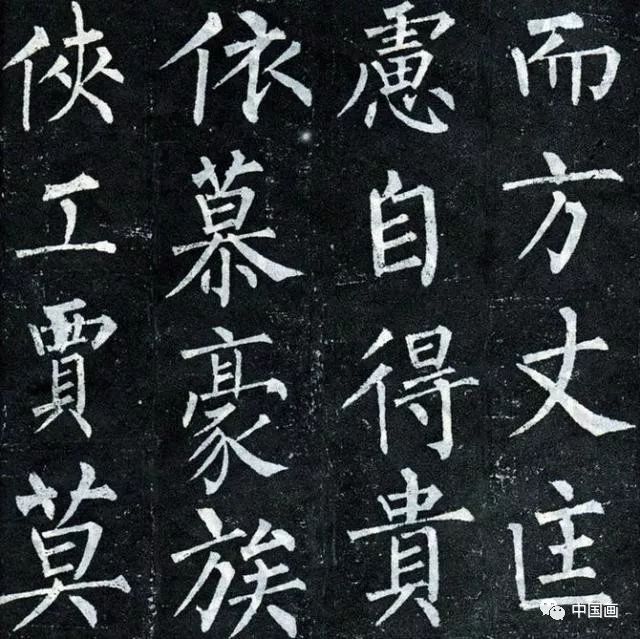 而方丈匡
慮自得貴
依慕豪族
俠工賈莫
中国画